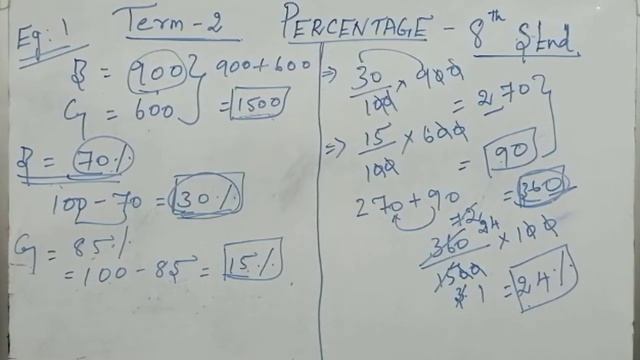 Eg:1 Term-2 PERCENTAGE - 8th Std
B = 900 } 900+600
G = 600 = 1500
B = 70%
100 - 70 = 30%
G = 85%
= 100 - 85 = 15%
⇒ 30/100 × 900
= 270
⇒ 15/100 × 600
= 90
270 + 90 = 360
360/1500 × 100
72 24
3 1 = 24%